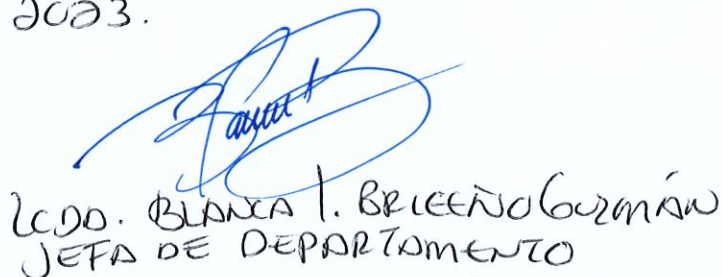 2023.
LCDO. BLANCA I. BRICEÑO GUZMÁN
JEFA DE DEPARTAMENTO